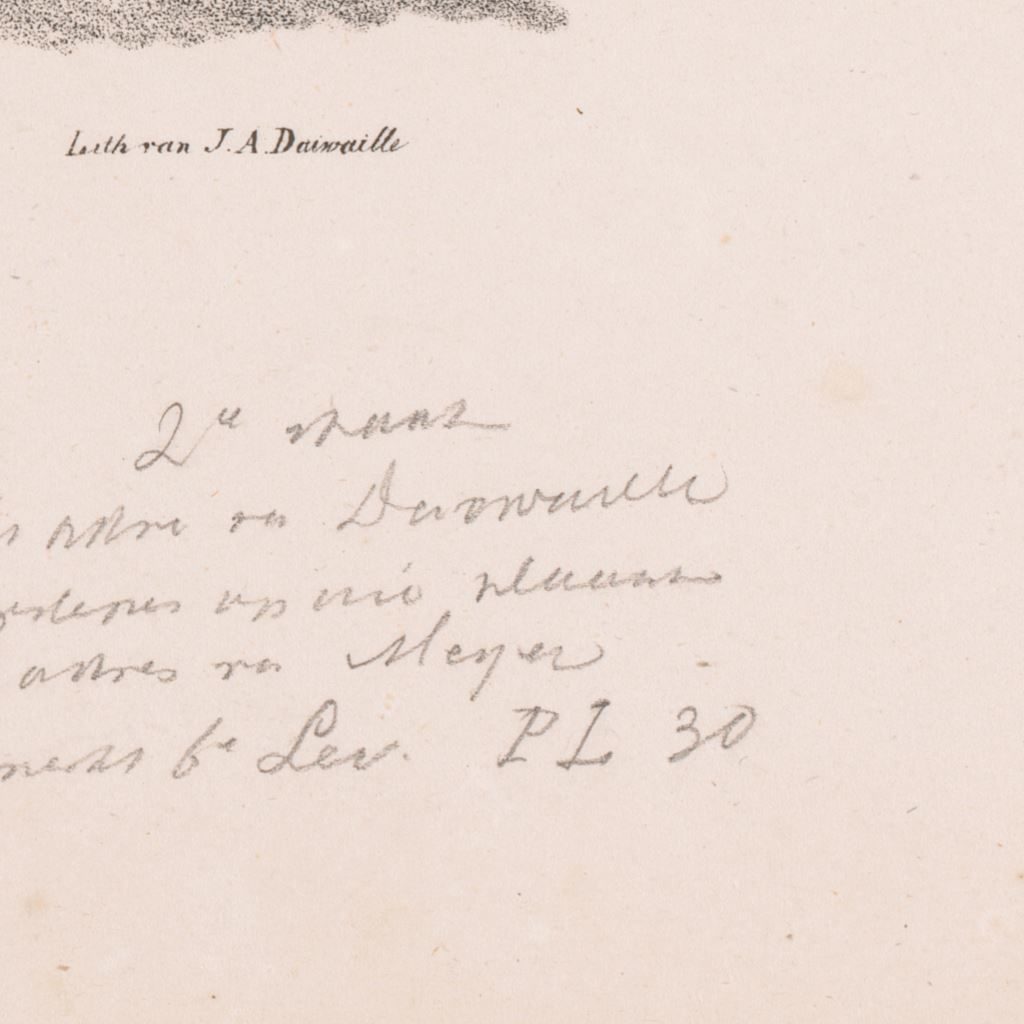 Lith van J. A. Daiwaille
2e staat
adres van Daiwaille
op
adres van Meyer
6e Lev. PL 30